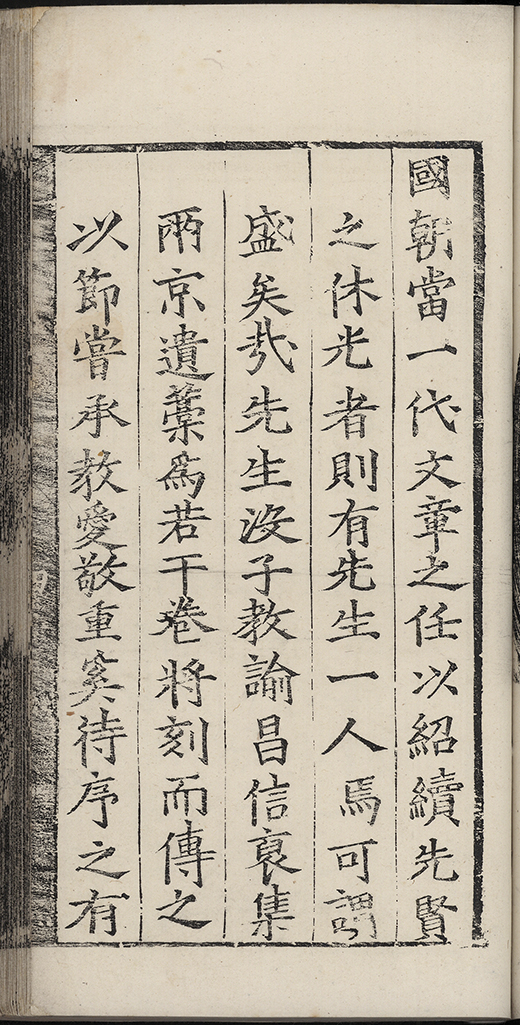 國朝當一代文章之任以紹續先賢
之休光者則有先生一人焉可謂
盛矣哉先生没子教諭昌信裒集
兩京遺藁爲若干卷將刻而傳之
以節嘗承教愛敬重奚待序之有